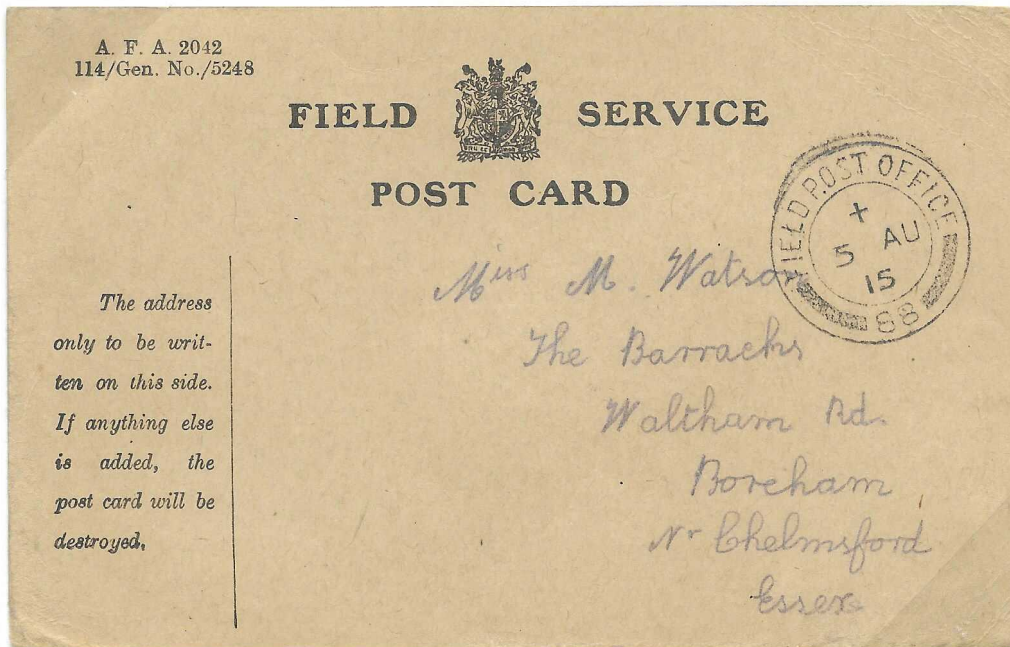 A. F. A. 2042
114/Gen. No./5248
FIELD SERVICE
POST CARD
FIELD POST OFFICE
+
5 AU
15
88
The address
only to be writ-
ten on this side.
If anything else
is added, the
post card will be
destroyed.
Miss M. Watson
The Barracks
Waltham Rd.
Boreham
Nr Chelmsford
Essex